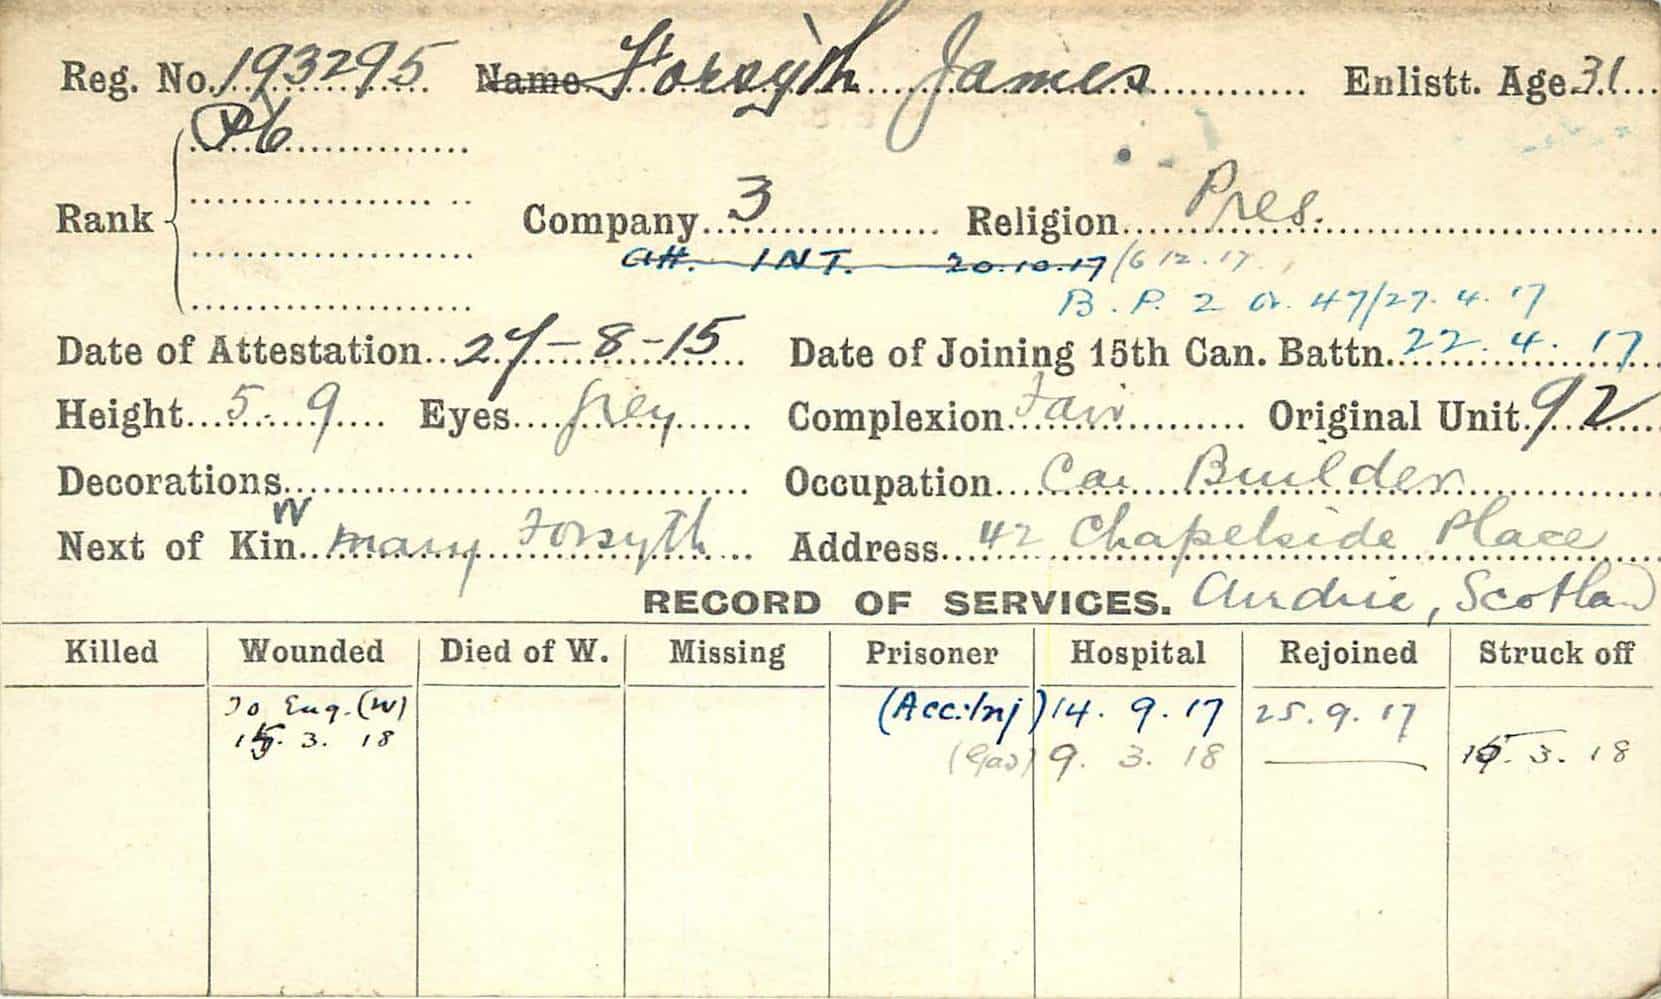 Reg. No. 193295 Name Forsyth James Enlistt. Age 31
Rank Pte
Company 3 Religion Pres.
att. INT. 20.10.17/6 12.17
B. P. 2 Or. 47/27. 4. 17
Date of Attestation 27-8-15 Date of Joining 15th Can. Battn. 22. 4. 17
Height 5. 9 Eyes Grey Complexion Fair Original Unit 92
Decorations Occupation Car Builder
W
Next of Kin Mary Forsyth Address 42 Chapelside Place
RECORD OF SERVICES. Airdrie, Scotland
Killed Wounded Died of W. Missing Prisoner Hospital Rejoined Struck off
To Eng. (W) (Acc: Inj) 14. 9. 17 25. 9. 17
15. 3. 18 (Gas) 9. 3. 18 15. 3. 18